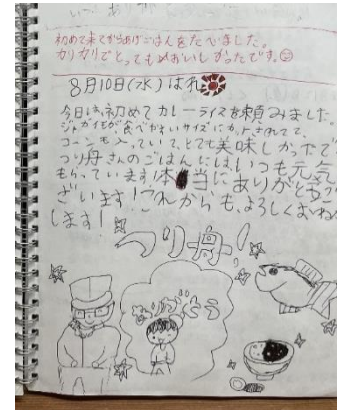 初めて来てからあげごはんをたべました。
カリカリでとってもおいしかったです。
8月10日(水) はれ
今日は、初めてカレーライスを頼みました。
ジャガイモが食べやすいサイズにカットされてて、
コーンも入っていて、とても美味しかったです
つり舟さんのごはんにはいつも元気
もらっています!本当にありがとうご
ざいます!これからも、よろしくおねが
します!
つり舟!
ありがとう